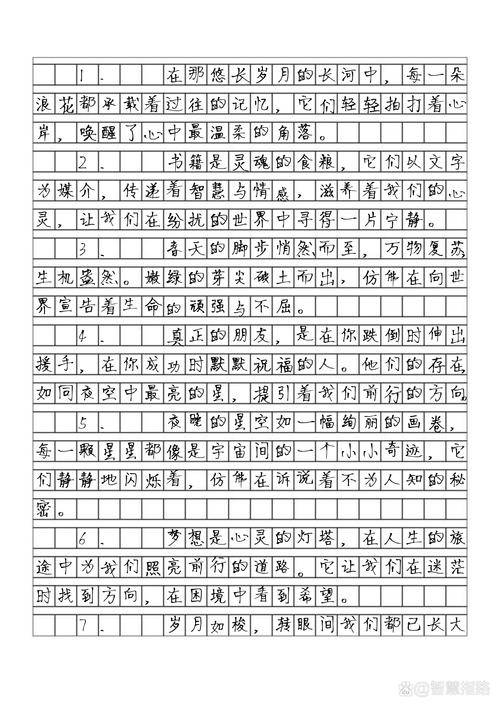 1. 在那悠长岁月的长河中，每一朵
浪花都承载着过往的记忆，它们轻轻拍打着心
岸，唤醒了心中最温柔的角落。
2. 书籍是灵魂的食粮，它们以文字
为媒介，传递着智慧与情感，滋养着我们的心
灵，让我们在纷扰的世界中寻得一片宁静。
3. 春天的脚步悄然而至，万物复苏，
生机盎然。嫩绿的芽尖破土而出，仿佛在向世
界宣告着生命的顽强与不屈。
4. 真正的朋友，是在你跌倒时伸出
援手，在你成功时默默祝福的人。他们的存在，
如同夜空中最亮的星，提引着我们前行的方向。
5. 夜晚的星空如一幅绚丽的画卷，
每一颗星星都像是宇宙间的一个小小奇迹，它
们静静地闪烁着，仿佛在诉说着不为人知的秘
密。
6. 梦想是心灵的灯塔，在人生的旅
途中为我们照亮前行的道路。它让我们在迷茫
时找到方向，在困境中看到希望。
7. 岁月如梭，转眼间我们都已长大
智慧指路